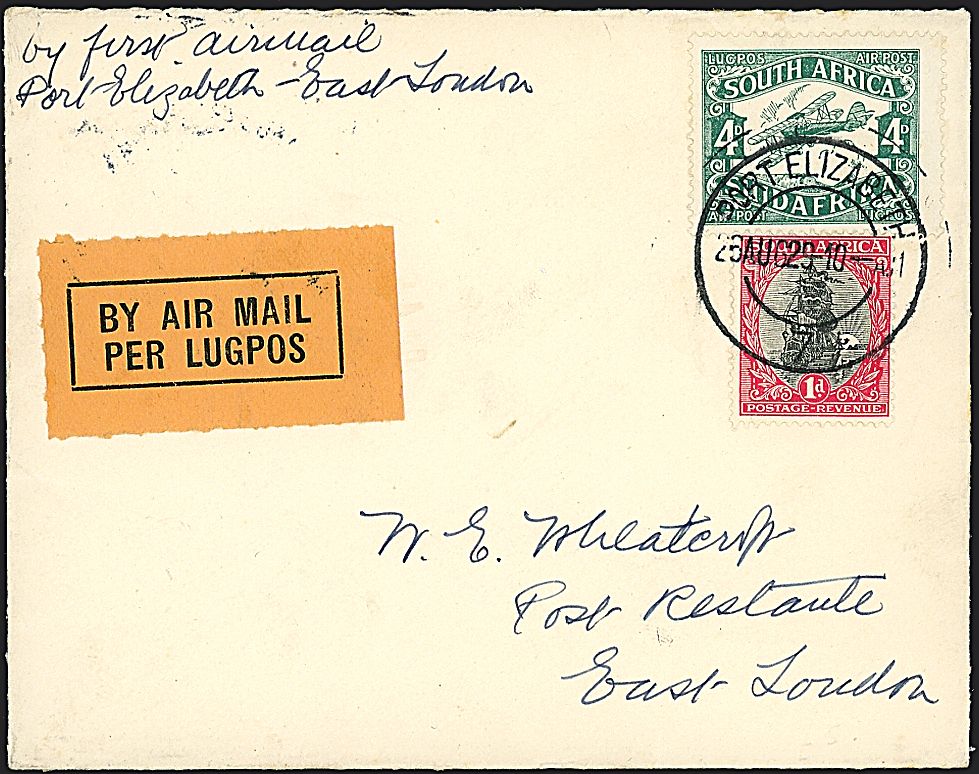 by first airmail
Port Elizabeth - East London
LUGPOS AIR POST
SOUTH AFRICA
4D 4D
SUIDAFRIKA
AIR POST LUGPOS
PORT ELIZABETH
AUG 29-10-A
SOUTH AFRICA
1d
POSTAGE-REVENUE
BY AIR MAIL
PER LUGPOS
W. E. Wheatcroft
Post Restante
East London